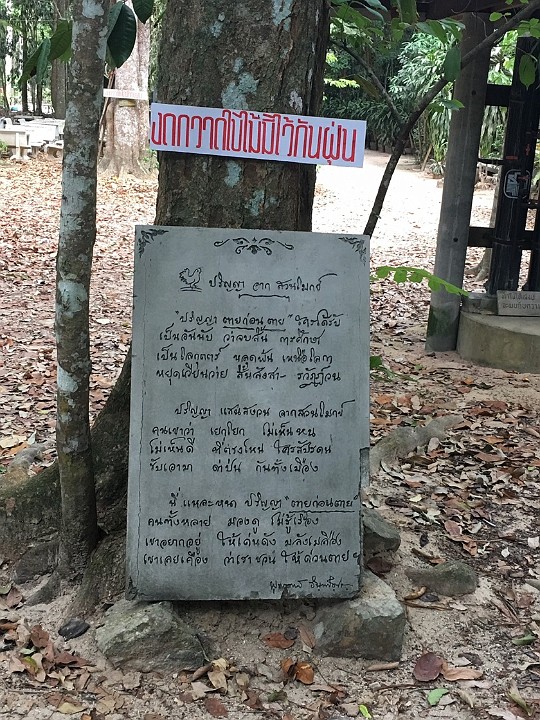 งดกวาดใบไม้มีไว้กันฝุ่น
ปริญญา จาก สวนโมกข์
"ปริญญา ตายก่อนตาย" ใครได้รับ
เป็นอันนับ ว่าจบสิ้น การศึกษา
เป็นโลกุตตร หลุดพ้น เหนือโลกา
หยุดเวียนว่าย สิ้นสังสา- รวัฏฏ์วน
ปริญญา แสนสงวน จากสวนโมกข์
คนเขาว่า เยกโยก ไม่เห็นหน
ไม่เห็นดี ที่ตรงไหน ใครสัปดน
รับเอามา ด่าป่น กันทั้งเมือง
นี่ แหละหนา ปริญญา "ตายก่อนตาย"
คนทั้งหลาย มองดู ไม่รู้เรื่อง
เขาอยากอยู่ ให้เด่นดัง มลังเมลือง
เขาเลยเคือง ว่าเราชวน ให้ด่วนตาย ฯ